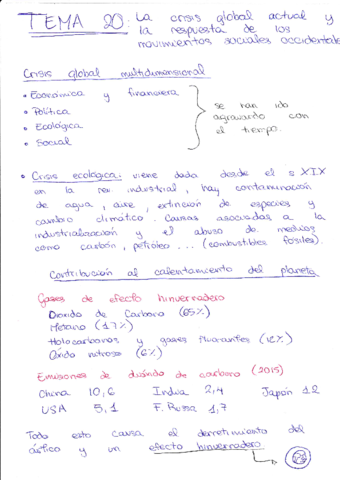 TEMA 20: La crisis global actual y
la respuesta de los
movimientos sociales occidentales
Crisis global multidimensional
• Económica y financiera
• Política
• Ecológica
• Social
se han ido
agravando con
el tiempo.
• Crisis ecológica: viene dada desde el s XIX
en la rev. industrial, hay contaminación
de agua, aire, extinción de especies y
cambio climático. Causas asociadas a la
industrialización y el abuso de medios
como carbón, petróleo ... (combustibles fósiles).
Contribución al calentamiento del planeta
Gases de efecto hinvernadero
Dioxido de Carbono (65%)
Metano (17%)
Holocarbonos y gases fluorantes (12%)
Óxido nitroso (6%)
Emisiones de dióxido de carbono (2015)
China 10,6 India 2,4 Japón 1.2
USA 5,1 F. Russa 1,7
Todo esto causa el derretimiento del
ártico y un efecto hinvernadero